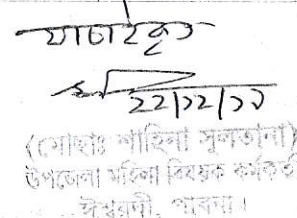 যাচাইকৃত
22/12/19
(মোছাঃ শাহিনা সুলতানা)
উপজেলা মহিলা বিষয়ক কর্মকর্তা
ঈশ্বরদী, পাবনা।